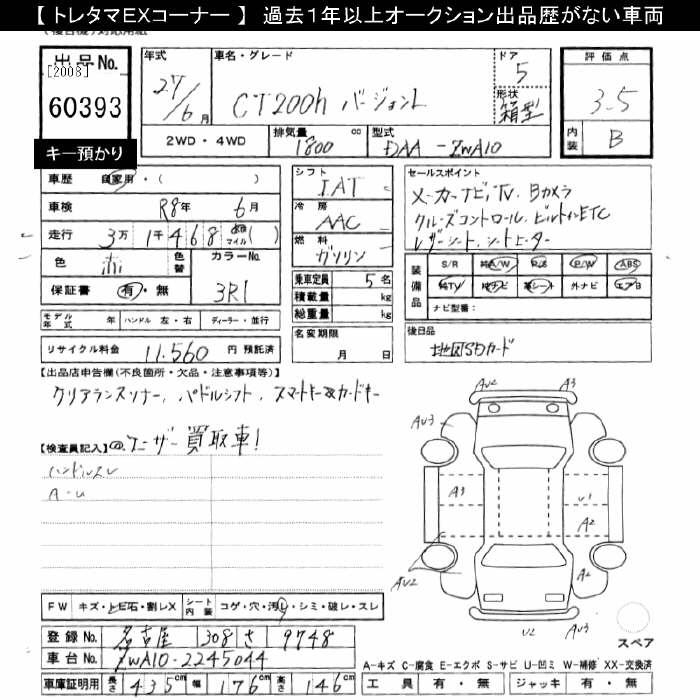 【 トレタマＥＸコーナー 】 過去１年以上オークション出品歴がない車両
出品No. [2008] 60393
キー預かり
年式 27/6月
車名・グレード CT200h バージョンL
ドア 5
形状 箱型
評価点 3.5
内装 B
2WD・4WD
排気量 1800 cc
型式 DAA-ZWA10
車歴 自家用・( )
車検 R8年 6月
走行 3万 1千468 (km マイル)
色 赤
色替
カラーNo. 3R1
保証書 有・無
シフト IAT
冷房 AAC
燃料 ガソリン
乗車定員 5名
積載量 kg
総重量 kg
セールスポイント
メーカーナビ,TV, Bカメラ
クルーズコントロール, ビルトインETC
レザーシート, シートヒーター
装備品 S/R 純A/W P.S P/W ABS
純TV 純ナビ 革シート 外ナビ エアB
ナビ型番:
モデル年式 年 ハンドル 左・右 ディーラー・並行
名変期限 月 日
後日品 地図SDカード
リサイクル料金 11,560 円 預託済
【出品店申告欄(不良箇所・欠品・注意事項等)】
クリアランスソナー, パドルシフト, スマートキー&カードキー
【検査員記入】 @ユーザー買取車!
ハンドルスレ
A-U
AU2 A3
AU3
A3 U1
A2
AU2 A2
U2 AU3
スペア
FW キズ・トビ石・割レX シート内装 コゲ・穴・汚レ・シミ・破レ・スレ
登録No. 名古屋 308 さ 9748
車台No. ZWA10-2245044
車庫証明用 長さ 435cm 幅 176cm 高さ 146cm
A-キズ C-腐食 E-エクボ S-サビ U-凹ミ W-補修 XX-交換済
工具 有・無 ジャッキ 有・無